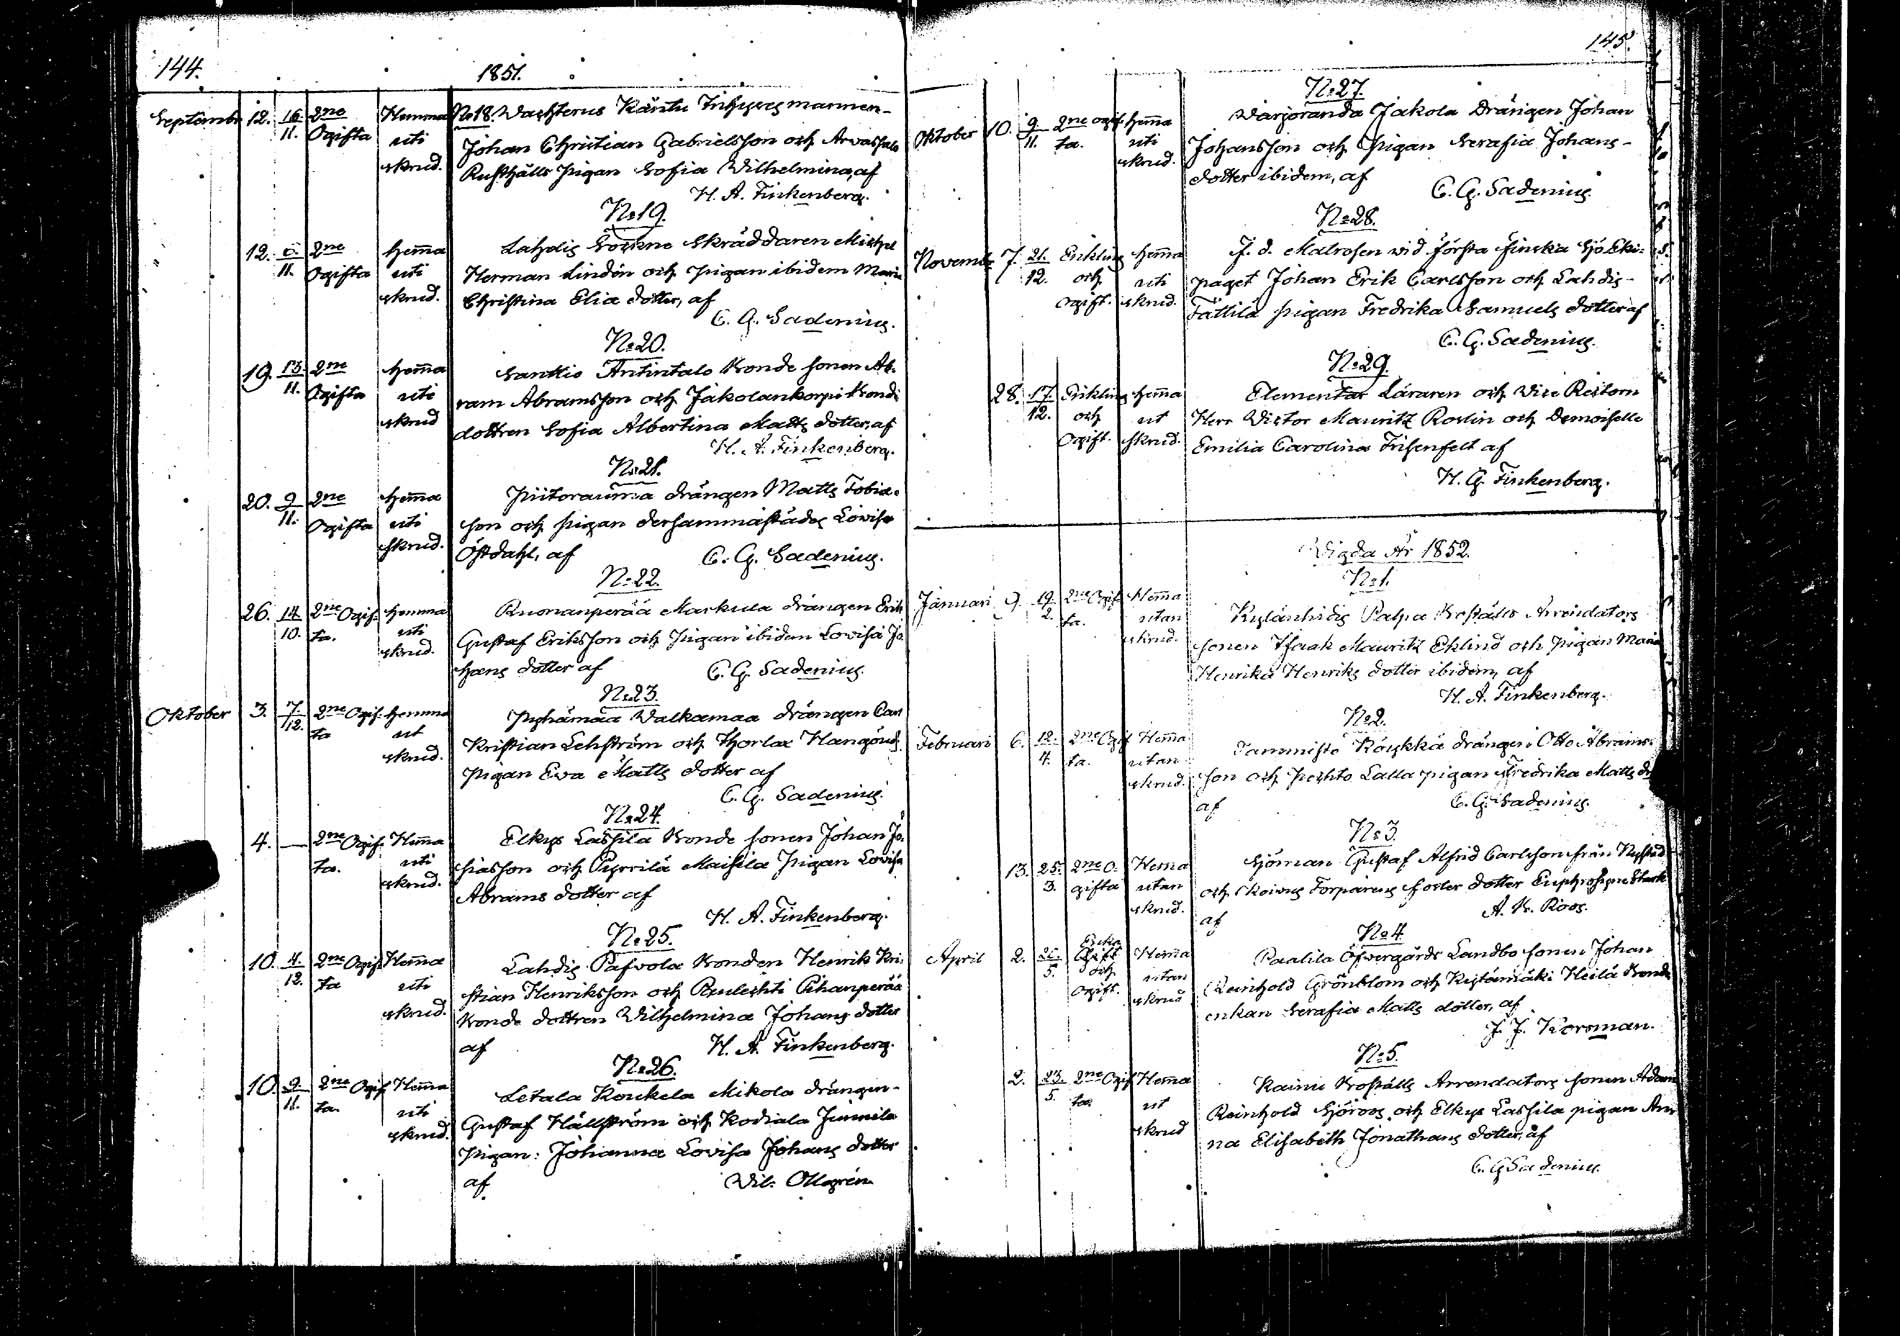 144.
1851.
September 12. 16/11. 2ne Ogifta Hemma uti skrud.
No 18. Wachterus Käntu Inhyses mannen
Johan Christian Gabrielsson och Arvassalo
Rusthålls pigan Sofia Wilhelmina, af
H. A. Finkenberg.
No 19.
12. 11. 2ne Ogifta hema uti skrud.
Lahdis Sockne Skräddaren Michel
Herman Lindén och pigan ibidem Maria
Christina Elia dotter, af
C. G. Sadenius.
No 20.
19. 13/11. 2ne Ogifta hema uti skrud
Santtio Antintalo Bonde sonen Ab-
ram Abramsson och Jakolankorpi Bonde
dottren Sofia Albertina Matts dotter, af
H. A. Finkenberg.
No 21.
20. 9/11. 2ne Ogifta hema uti skrud.
drängen Matts Tobia-
son och pigan dersammastädes Lovisa
Östdahl, af
C. G. Sadenius.
No 22.
26. 14/10. 2ne Ogif-ta. hemma uti skrud.
Ruonanperää Markula drängen Erik
Gustaf Eriksson och pigan ibidem Lovisa Jo-
hans dotter af
C. G. Sadenius.
No 23.
Oktober 3. 7/12. 2ne Ogif-ta hemma ut skrud.
Pyhämaa Walkamaa drängen Carl
Kristian Lehström och Thorlax Hangönds
pigan Eva Matts dotter af
C. G. Sadenius.
No 24.
4. — 2ne Ogif-ta. Hema uti skrud.
Elkys Lassila Bonde sonen Johan Jo-
siasson och Pyrrilä Maisila pigan Lovisa
Abrams dotter af
H. A. Finkenberg.
No 25.
10. 4/12. 2ne Ogif-ta Hema uti skrud.
Lahdis Pafvola Bonden Henrik Kri-
stian Henriksson och Ruleshti Pihanperää
Bonde dottren Wilhelmina Johans dotter
af
H. A. Finkenberg.
No 26.
10. 9/11. 2ne Ogif-ta. Hema uti skrud.
Letala Koukela Mikola drängen
Gustaf Hällström och Kodiala Junnila
pigan: Johanna Lovisa Johans dotter
af
Wil: Ollegrén
145.
No 27.
Oktober 10. 9/11. 2ne ogif-ta. hema uti skrud.
Warjoranda Jakola Drängen Johan
Johansson och pigan Serafia Johans-
dotter ibidem, af
C. G. Sadenius.
No 28.
November 7. 21/12. Enkling och ogift. hema uti skrud.
F. d. Matrosen vid första finska Sjö Eki-
paget Johan Erik Carlsson och Lahdis-
Tättilä pigan Fredrika Samuels dotter af
C. G. Sadenius.
No 29.
28. 17/12. Enkling och Ogift. hema ut skrud.
Elementar Läraren och Vice Rectorn
Herr Victor Mauritz Roslin och Demoiselle
Emilia Carolina Frisenfelt af
H. G. Finkenberg.
Wigda År 1852.
No 1.
Januari 9. 19/2. 2ne Ogif-ta. Hema utan skrud.
Kylänhidis Palsa Bostälts Arrendators
sonen Isaak Mauritz Eklind och pigan Maria
Henrika Henriks dotter ibidem, af
H. A. Finkenberg.
No 2.
Februari 6. 12/4. 2ne Ogif-ta. Hema utan skrud.
Tammisto Röykkä drängen Otto Abrams-
son och Lalla pigan Fredrika Matts
af
C. G. Sadenius.
No 3.
13. 25/3. 2ne O-gifta Hema utan skrud.
Sjöman Gustaf Alfrid Carlsson från Nystad
och Koivus Torparens foster dotter Euphrosyne Stark
af
A. K. Roos.
No 4
April 2. /5. och Ogift. Hema utan skrud
Paalila Öfvergårds Landbo sonen Johan
Reinhold Grönblom och Heilä Bonde
enkan Serafia Matts dotter, af
J. J. Korsman.
No 5.
2. 23/5. 2ne Ogif-ta. Hema ut skrud
Kainu Bostälts Arrendators sonen Adam
Reinhold Sjöroos och Elkys Lassila pigan An-
na Elisabeth Jonathans dotter, af
C. G. Sadenius.